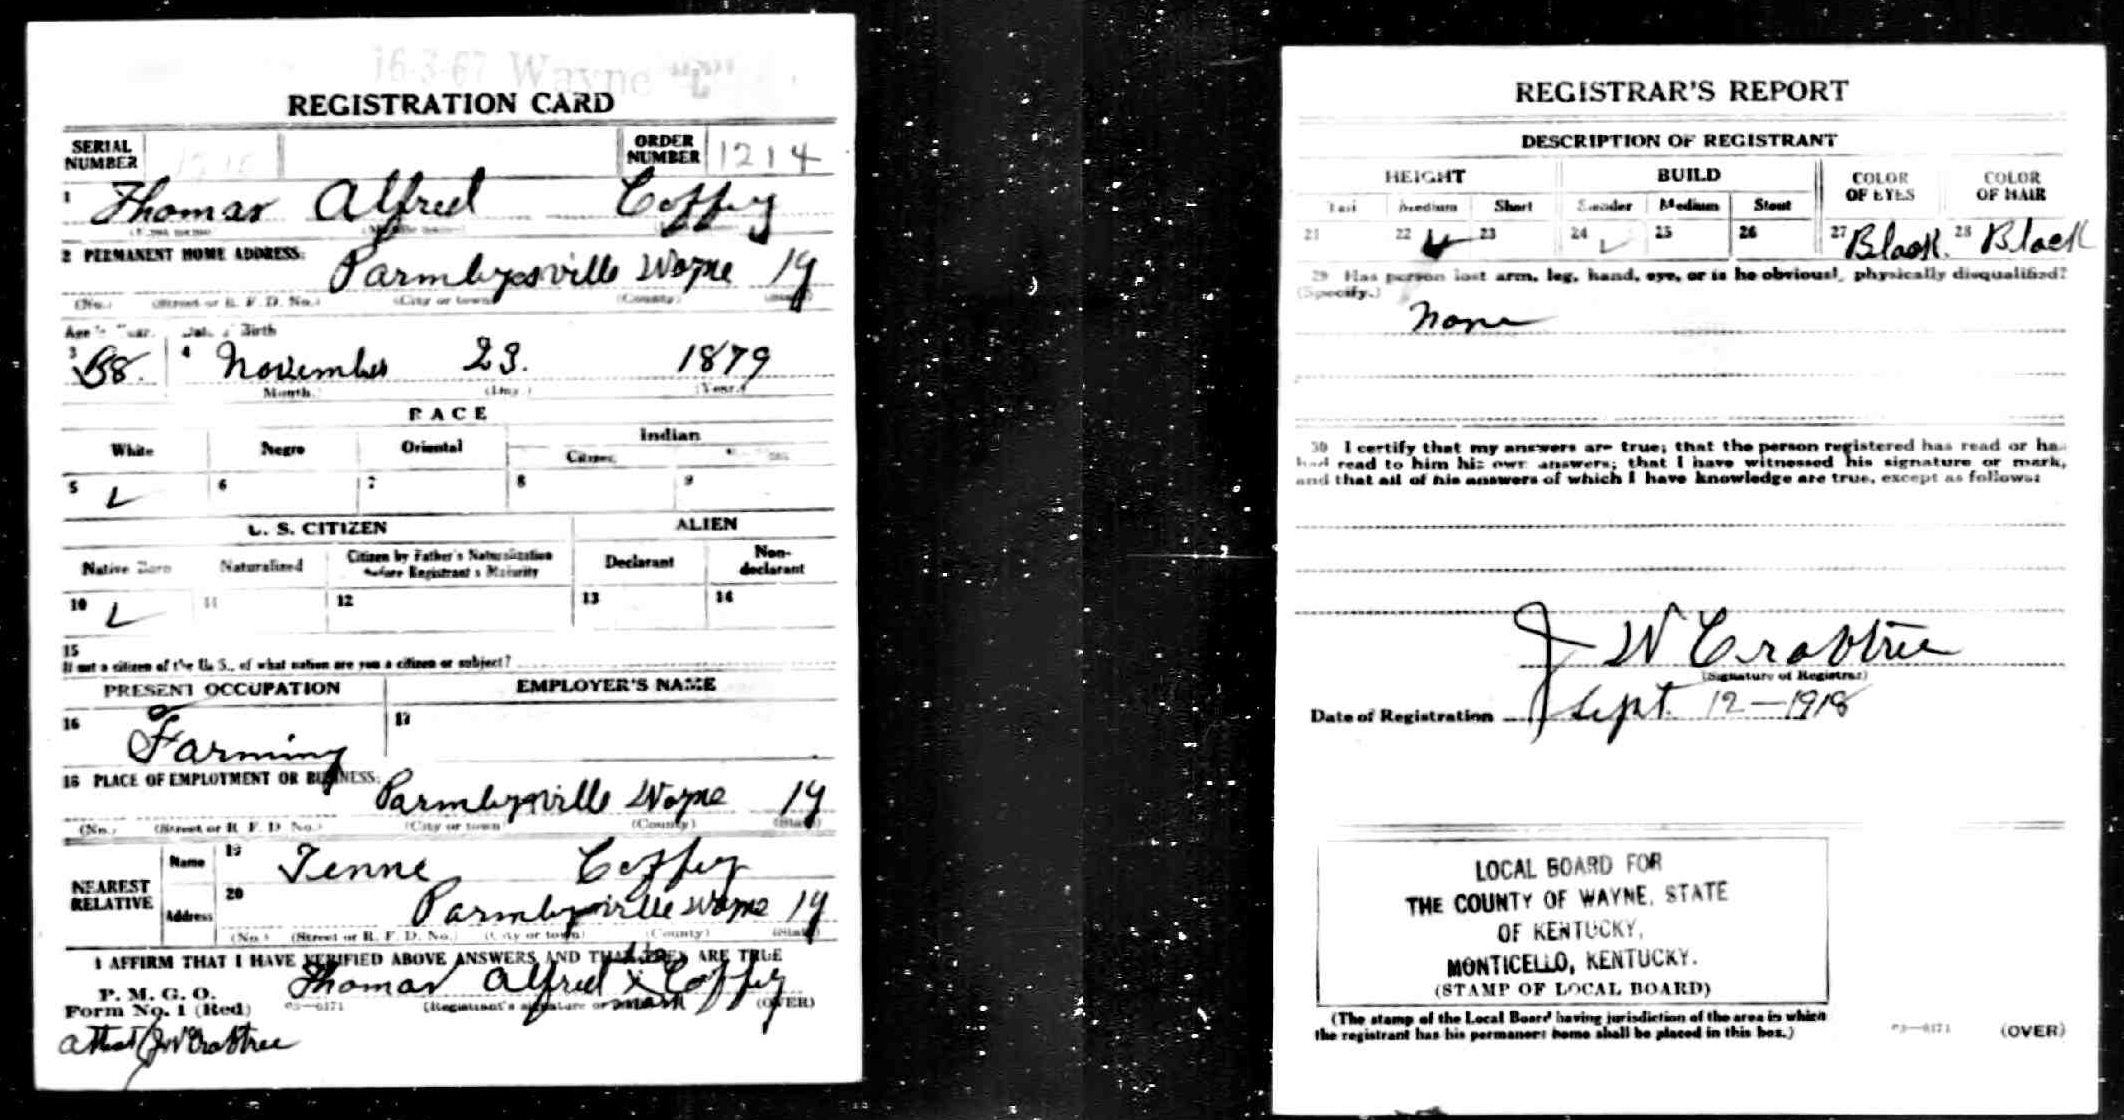 16-3-67 Wayne "C"
REGISTRATION CARD
SERIAL NUMBER
ORDER NUMBER 1214
1 Thomas Alfred Coffey
(Middle name)
2 PERMANENT HOME ADDRESS:
Parmleysville Wayne Ky
(No.) (Street or R. F. D. No.) (City or town) (County) (State)
Age in Years Date of Birth
3 38. 4 November 23. 1879
Month. (Day.) (Year.)
RACE
White Negro Oriental Indian
Citizen
5 ✓ 6 7 8 9
U. S. CITIZEN ALIEN
Native Born Naturalized Citizen by Father's Naturalization before Registrant's Majority Declarant Non-declarant
10 ✓ 11 12 13 14
15
If not a citizen of the U. S., of what nation are you a citizen or subject?
PRESENT OCCUPATION EMPLOYER'S NAME
16 Farming 17
18 PLACE OF EMPLOYMENT OR BUSINESS:
Parmleysville Wayne Ky
(No.) (Street or R. F. D. No.) (City or town) (County) (State)
NEAREST RELATIVE
Name 19 Tenne Coffey
Address 20 Parmleysville Wayne Ky
(No.) (Street or R. F. D. No.) (City or town) (County) (State)
I AFFIRM THAT I HAVE VERIFIED ABOVE ANSWERS AND THAT THEY ARE TRUE
P. M. G. O.
Form No. 1 (Red)
03—6171
his
Thomas Alfred x Coffey
mark
(Registrant's signature or mark) (OVER)
attest J W Crabtree
REGISTRAR'S REPORT
DESCRIPTION OF REGISTRANT
HEIGHT BUILD COLOR OF EYES COLOR OF HAIR
Tall Medium Short Slender Medium Stout
21 22 ✓ 23 24 ✓ 25 26 27 Black. 28 Black
29 Has person lost arm, leg, hand, eye, or is he obviously physically disqualified?
(Specify.)
None
30 I certify that my answers are true; that the person registered has read or has
had read to him his own answers; that I have witnessed his signature or mark,
and that all of his answers of which I have knowledge are true, except as follows:
J W Crabtree
(Signature of Registrar)
Date of Registration Sept. 12—1918
LOCAL BOARD FOR
THE COUNTY OF WAYNE, STATE
OF KENTUCKY,
MONTICELLO, KENTUCKY.
(STAMP OF LOCAL BOARD)
(The stamp of the Local Board having jurisdiction of the area in which
the registrant has his permanent home shall be placed in this box.)
03—6171 (OVER)